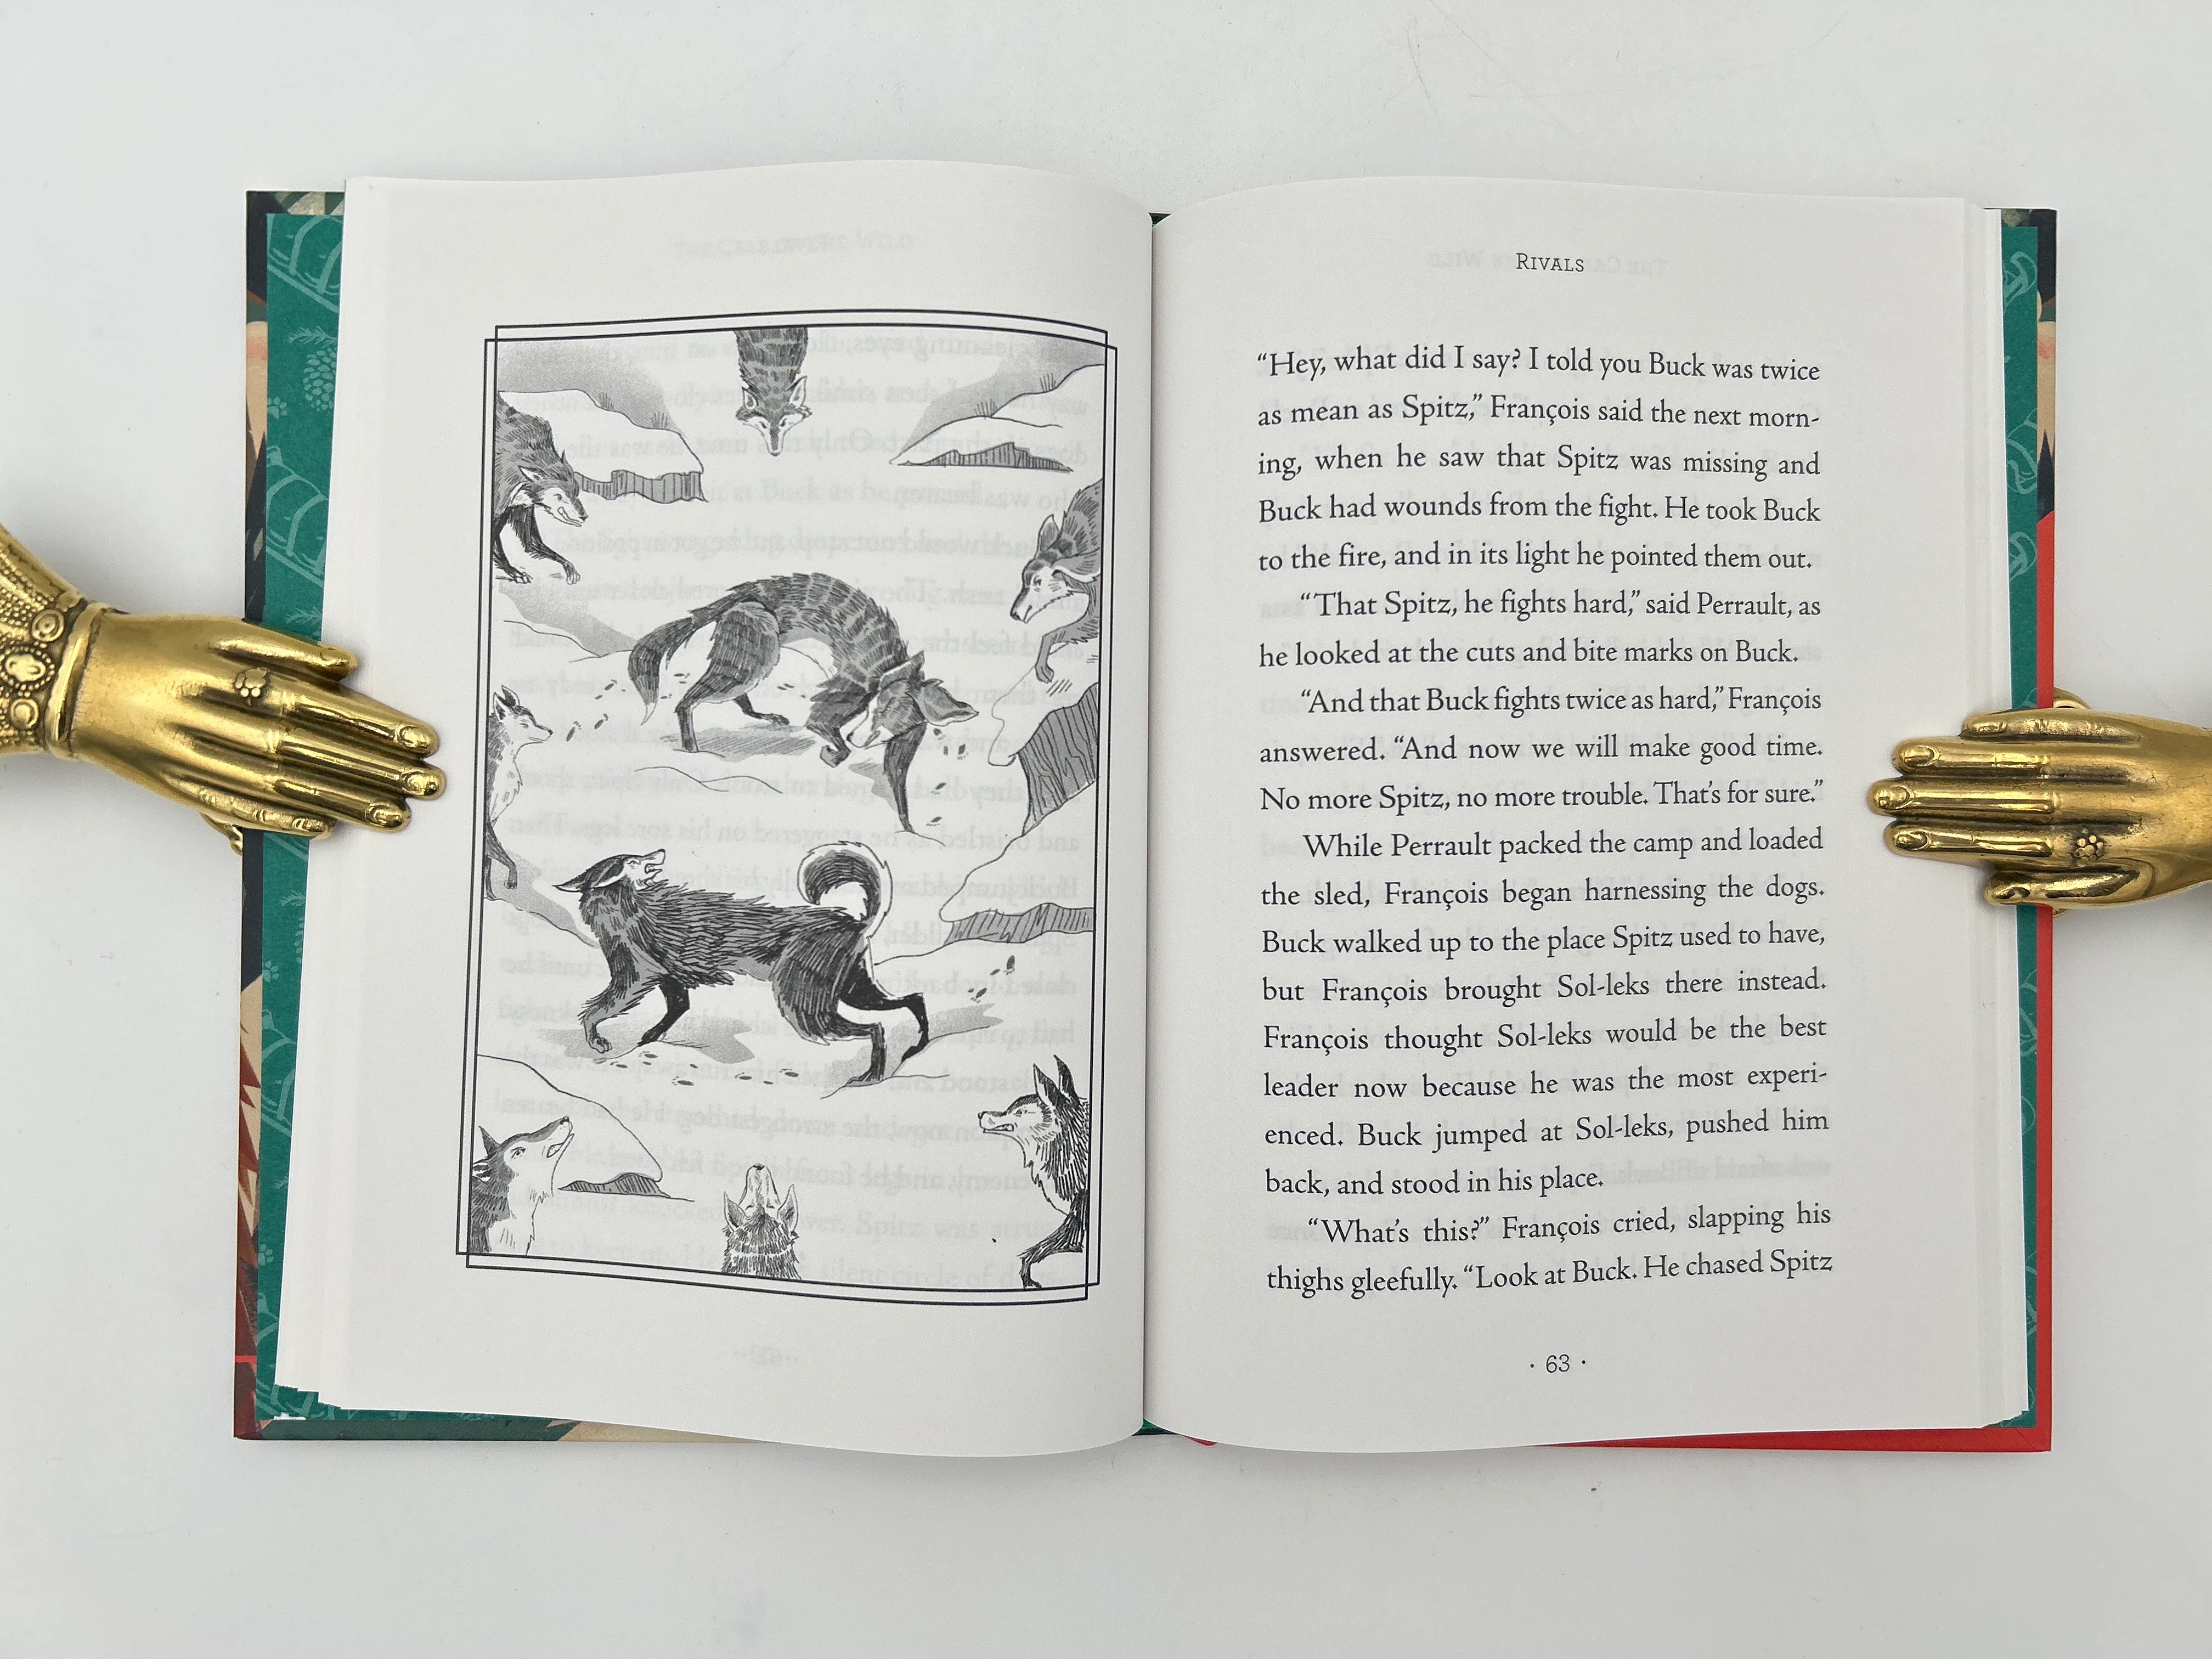 RIVALS
“Hey, what did I say? I told you Buck was twice
as mean as Spitz,” François said the next morn-
ing, when he saw that Spitz was missing and
Buck had wounds from the fight. He took Buck
to the fire, and in its light he pointed them out.
“That Spitz, he fights hard,” said Perrault, as
he looked at the cuts and bite marks on Buck.
“And that Buck fights twice as hard,” François
answered. “And now we will make good time.
No more Spitz, no more trouble. That’s for sure.”
While Perrault packed the camp and loaded
the sled, François began harnessing the dogs.
Buck walked up to the place Spitz used to have,
but François brought Sol-leks there instead.
François thought Sol-leks would be the best
leader now because he was the most experi-
enced. Buck jumped at Sol-leks, pushed him
back, and stood in his place.
“What’s this?” François cried, slapping his
thighs gleefully. “Look at Buck. He chased Spitz
· 63 ·